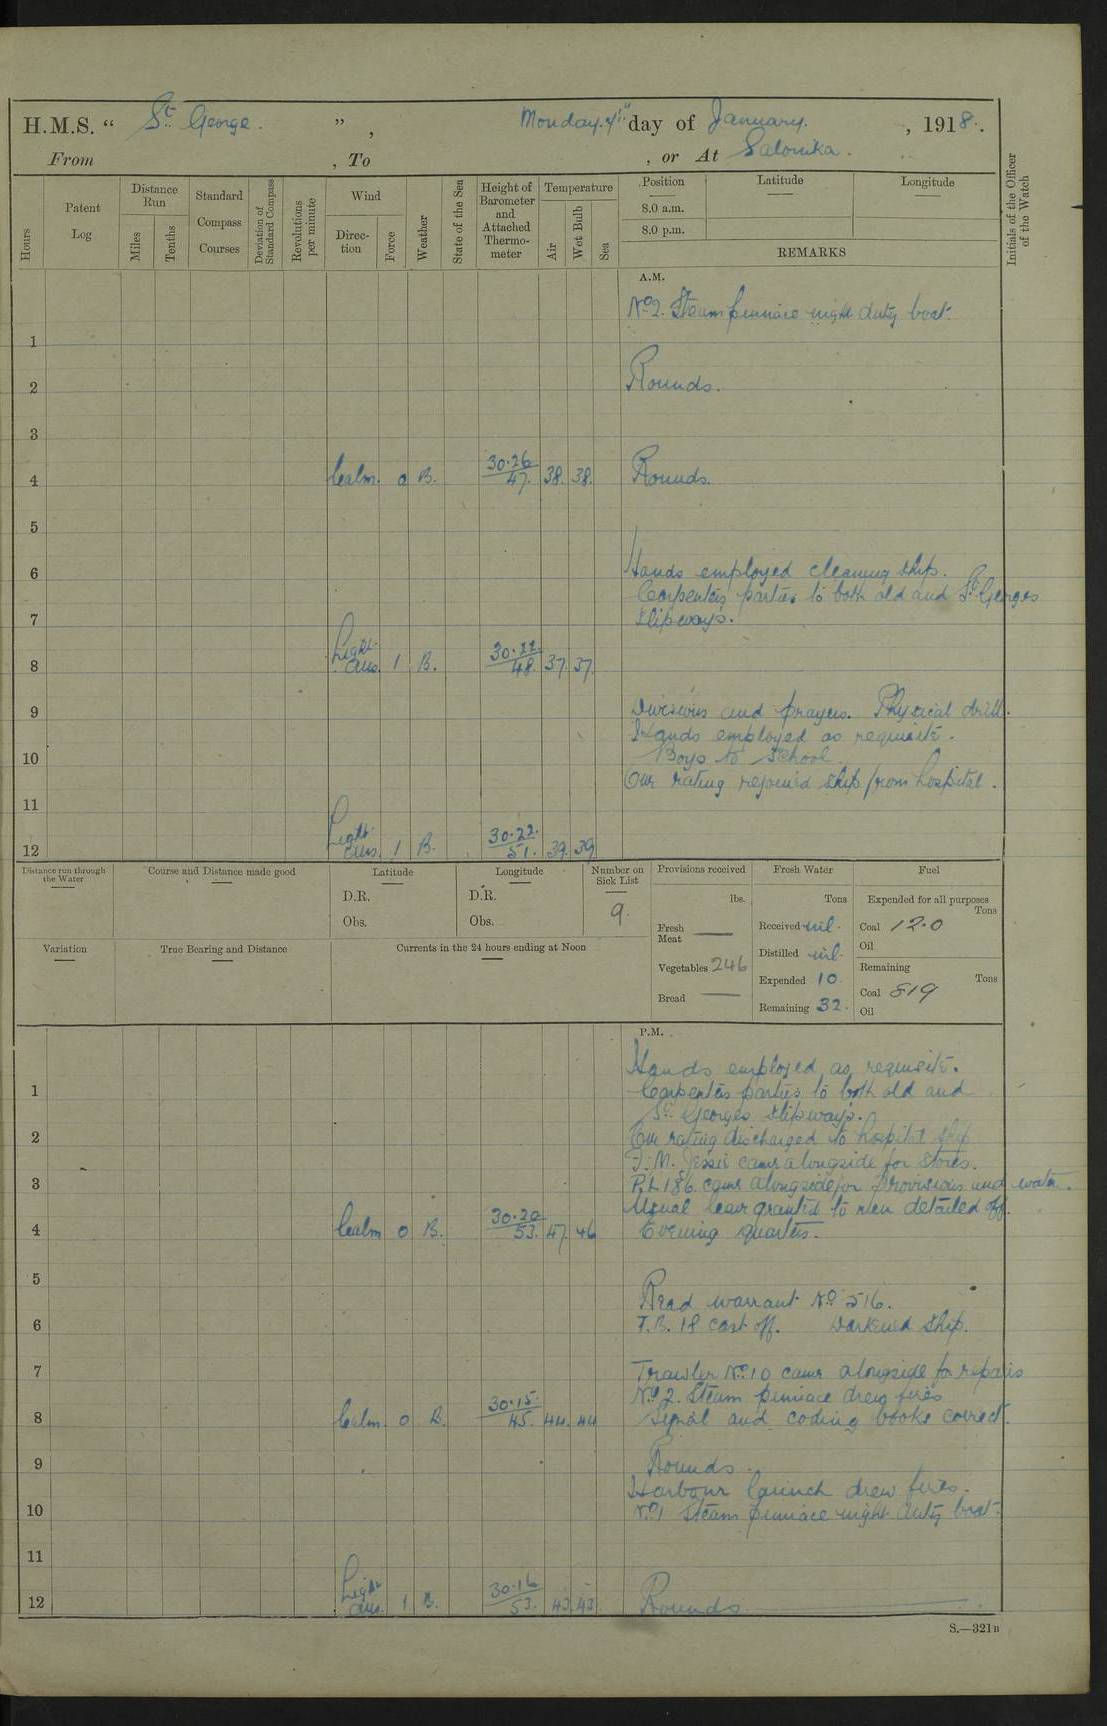 H.M.S. " St. George. ", Monday. 7th day of January. , 1918.
From , To , or At Salonika.
Hours
Patent Log
Distance Run
Miles
Tenths
Standard Compass Courses
Deviation of Standard Compass
Revolutions per minute
Wind
Direction
Force
Weather
State of the Sea
Height of Barometer and Attached Thermometer
Temperature
Air
Wet Bulb
Sea
Position
Latitude
Longitude
8.0 a.m.
8.0 p.m.
REMARKS
Initials of the Officer of the Watch
A.M.
No 2. Steam pinnace night duty boat.
1
2 Rounds.
3
4 Calm. 0 B. 30.26 47. 38. 38. Rounds.
5
6 Hands employed cleaning ship.
Carpenters parties to both old and St. Georges
7 slipways.
8 Light airs. 1 B. 30.22 48. 37. 37.
9 Divisions and prayers. Physical drill.
Hands employed as requisite.
10 Boys to School.
One rating rejoined ship from hospital.
11
12 Light airs. 1 B. 30.22. 51. 39. 39
Distance run through the Water
Course and Distance made good
Latitude
D.R.
Obs.
Longitude
D.R.
Obs.
Number on Sick List
9.
Provisions received
lbs.
Fresh Meat —
Vegetables 246
Bread —
Fresh Water
Tons
Received nil.
Distilled nil.
Expended 10
Remaining 32.
Fuel
Expended for all purposes
Tons
Coal 12.0
Oil
Remaining
Tons
Coal 819
Oil
Variation
True Bearing and Distance
Currents in the 24 hours ending at Noon
P.M.
Hands employed as requisite.
1 Carpenters parties to both old and
St. Georges slipways.
2 One rating discharged to hospital ship
F.M. Jessie came alongside for stores.
3 P.L 186. came alongside for provisions and water.
Usual leave granted to men detailed off.
4 Calm 0 B. 30.20 53. 47. 46 Evening quarters.
5
Read warrant No 516.
6 T.B. 18 cast off. Darkened ship.
7 Trawler No 10 came alongside for repairs
No 2. Steam pinnace drew fires
8 Calm. 0 B. 30.15. 45. 44. 44 Signal and coding books correct.
9 Rounds.
Harbour launch drew fires.
10 No 1 Steam pinnace night duty boat.
11
12 Light airs. 1 B. 30.16 53. 43. 43 Rounds
S.—321B